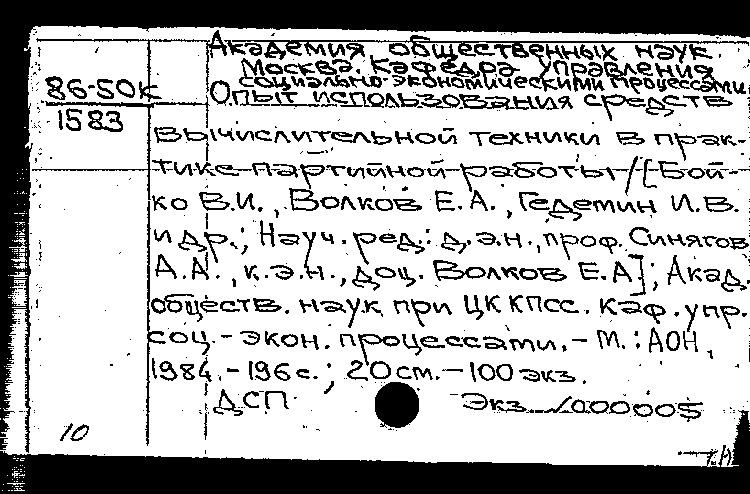 Академия общественных наук.
Москва. Кафедра управления
социально-экономическими процессами
86-50к
1583
Опыт использования средств
вычислительной техники в прак-
тике партийной работы / [Бой-
ко В.И., Волков Е.А., Гедетин И.В.
и др.; Науч. ред.: д.э.н., проф. Синягов
А.А., к.э.н., доц. Волков Е.А]; Акад.
обществ. наук при ЦК КПСС. Каф. упр.
соц.-экон. процессами. - М.: АОН,
1984. - 196 с.; 20 см. - 100 экз.
ДСП Экз. 000005
10